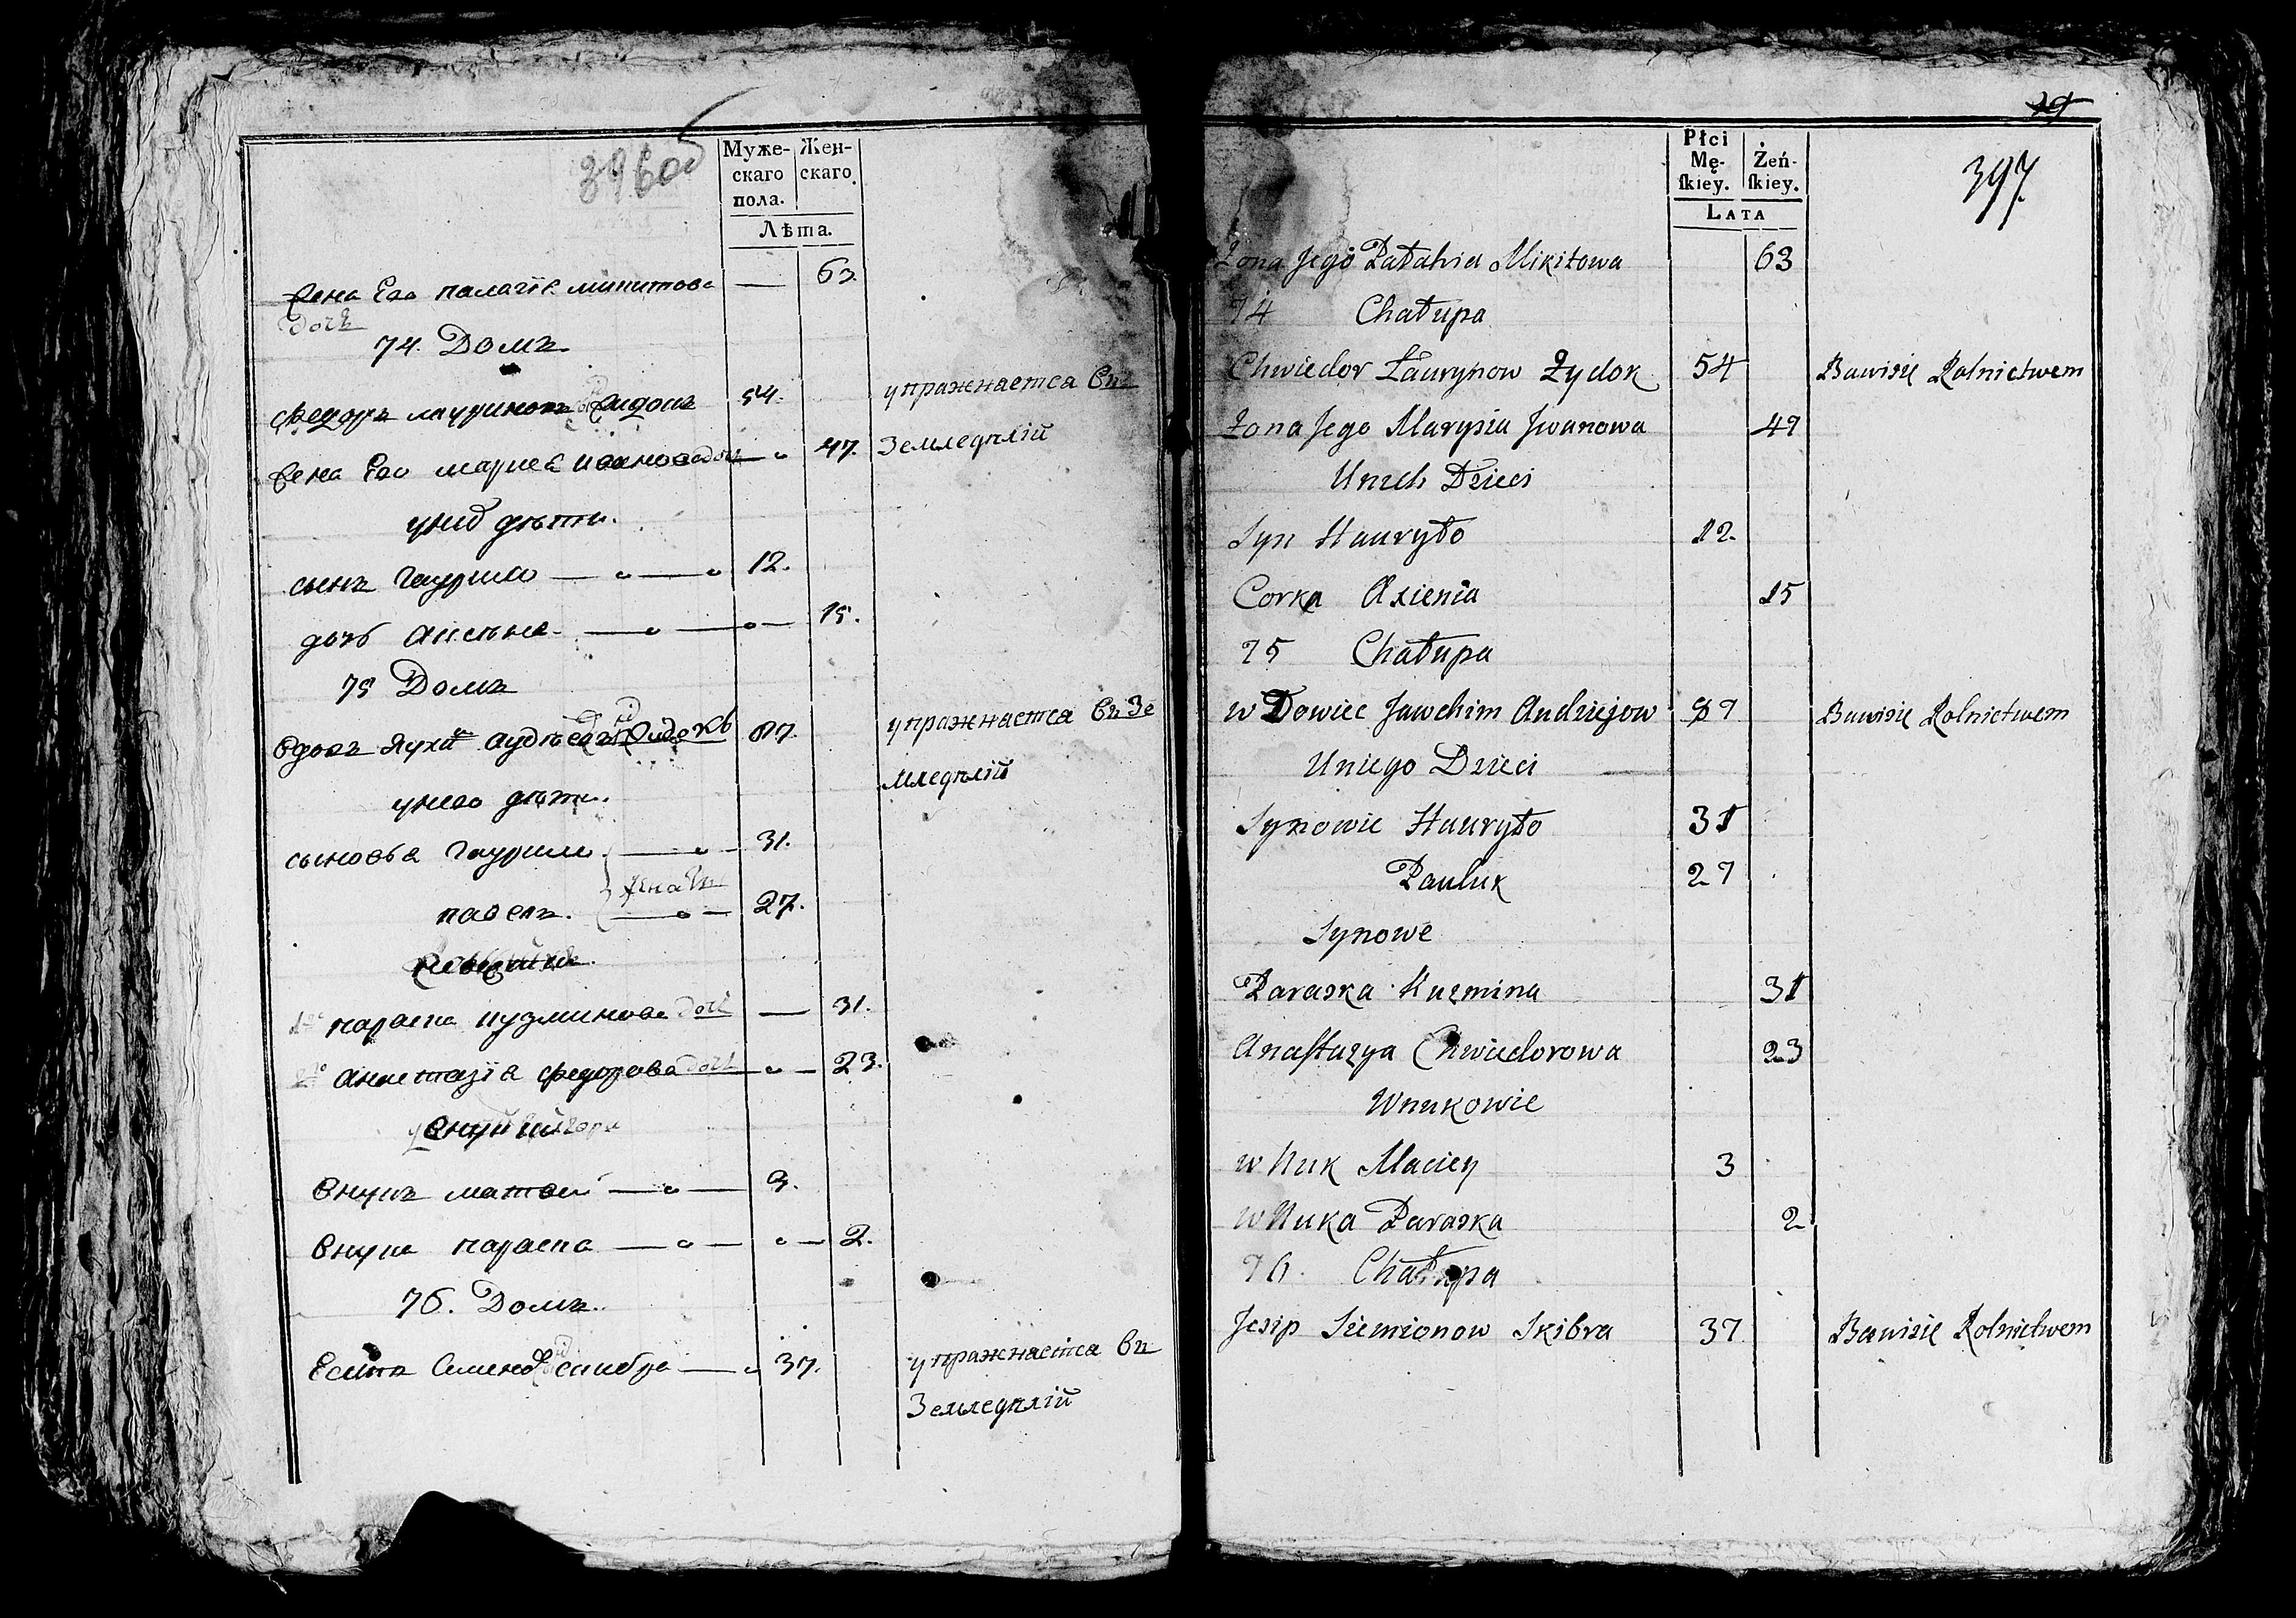 396 об
Муже-
скаго
пола.
Жен-
скаго.
Лѣта.
жена Его палагія микитова 63.
дочь
74. Домъ
федоръ лауриновъ жидокъ 54. упражнаетса въ
жена Его мариса иванова дочь 47. Земледѣлій
у них дѣти.
сынъ гаурило 12.
дочь аксѣня 15.
75 Домъ
вдовъ Яухи 87. упражнаетса въ Зе
мледѣлій
у него дѣти.
сыновья гаурило 31.
женаты
павелъ. 27.
невѣстки.
1я параска кузминова дочь 31.
2я анастазіа федорова дочь 23.
внуки
внукъ матвей 3.
внука параска 2.
76. Домъ.
Есипъ Семенов скибра 37. упражнаетса въ
Земледѣлій
29
397.
Płci
Mę-
ſkiey.
Żeń-
ſkiey.
LATA
Żona Jego Pałahia Mikitowa 63
74 Chałupa
Chwiedor Łaurynow Żydok 54 Bawisie Rolnictwem
Żona Jego Marysia Jwanowa 47
Unich Dzieci
Syn Hauryło 12.
Corka Axienia 15
75 Chałupa
wDowiec Jawchim Andziejow 87 Bawisie Rolnictwem
Uniego Dzieci
Synowie Hauryło 31
Pauluk 27
Synowe
Paraska Kuzmina 31
Anaſtazya Chwiedorowa 23
Wnukowie
wNuk Maciey 3
wNuka Paraska 2
76. Chałupa
Jesip Siemionow Skibra 37 Bawisie Rolnictwem